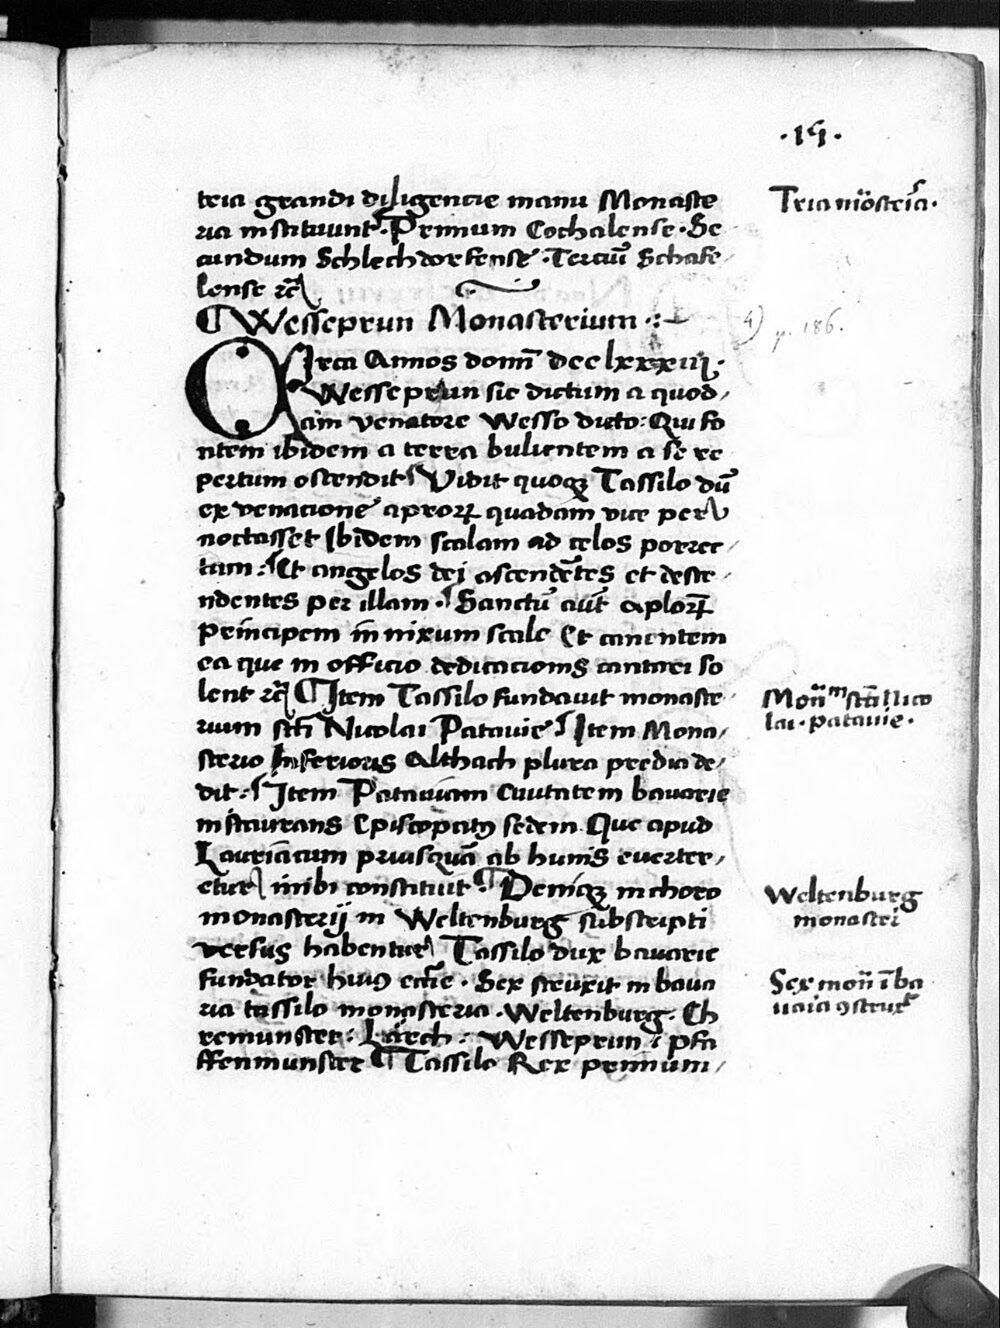 ·15·
tria grandi diligencie manu Monaste
ria instituunt· Primum Cochalense· Se
cundum Schlechdorfense· Terciū Schafe/
lense rc̄
Tria mōstria·
¶ Wesseprun Monasterium·:~
4) p. 186.
Circa Annos domī dcc lxxxiij·
Wesseprun sic dictum a quod/
am venatore Wesso dicto: Qui fo
ntem ibidem a terra bulientem a se re
pertum ostendit Vidit quoqꝫ Tassilo dū
ex venacione aproꝝ quadam vice per
noctasset Ibidem scalam ad celos porrec/
tam: Et angelos dei ascendētes et desce/
ndentes per illam· Sanctū aūt aploꝝ
principem innixum scale Et canentem
ea que in officio dedicacionis cantari so
lent rc̄ ¶ Item Tassilo fundauit monaste/
rium scti Nicolai Patauie Item Mona/
sterio Inferioris Althach plura predia de/
dit: Item Patauiam Ciuitatem bauarie
instaurans Episcopatꝰ sedem Que apud
Lauriacum priusquā ab hunis euerter/
etur inibi constituit ¶ Deniqꝫ in choro
monasterij in Weltenburg subscripti
versus habentur Tassilo dux bauarie
fundator huiꝰ eccīe· Sex struxit in baua
ria tassilo monasteria· Weltenburg· Ch
remunster: Lårch: Wesseprun: pfa
ffenmunster ¶ Tassilo Rex primum/
Monm̄ scti Nico
lai· patauie·
Weltenburg
monasteri
Sex mon̄ ī ba
uaia ꝯstruxt